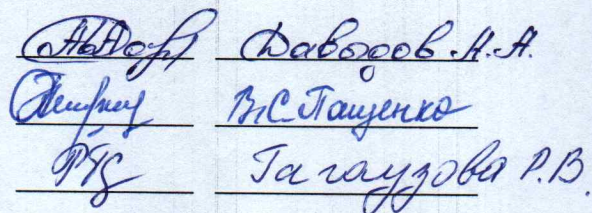 Давыдов Н.А.
В.С. Пащенко
Гагаузова Р.В.